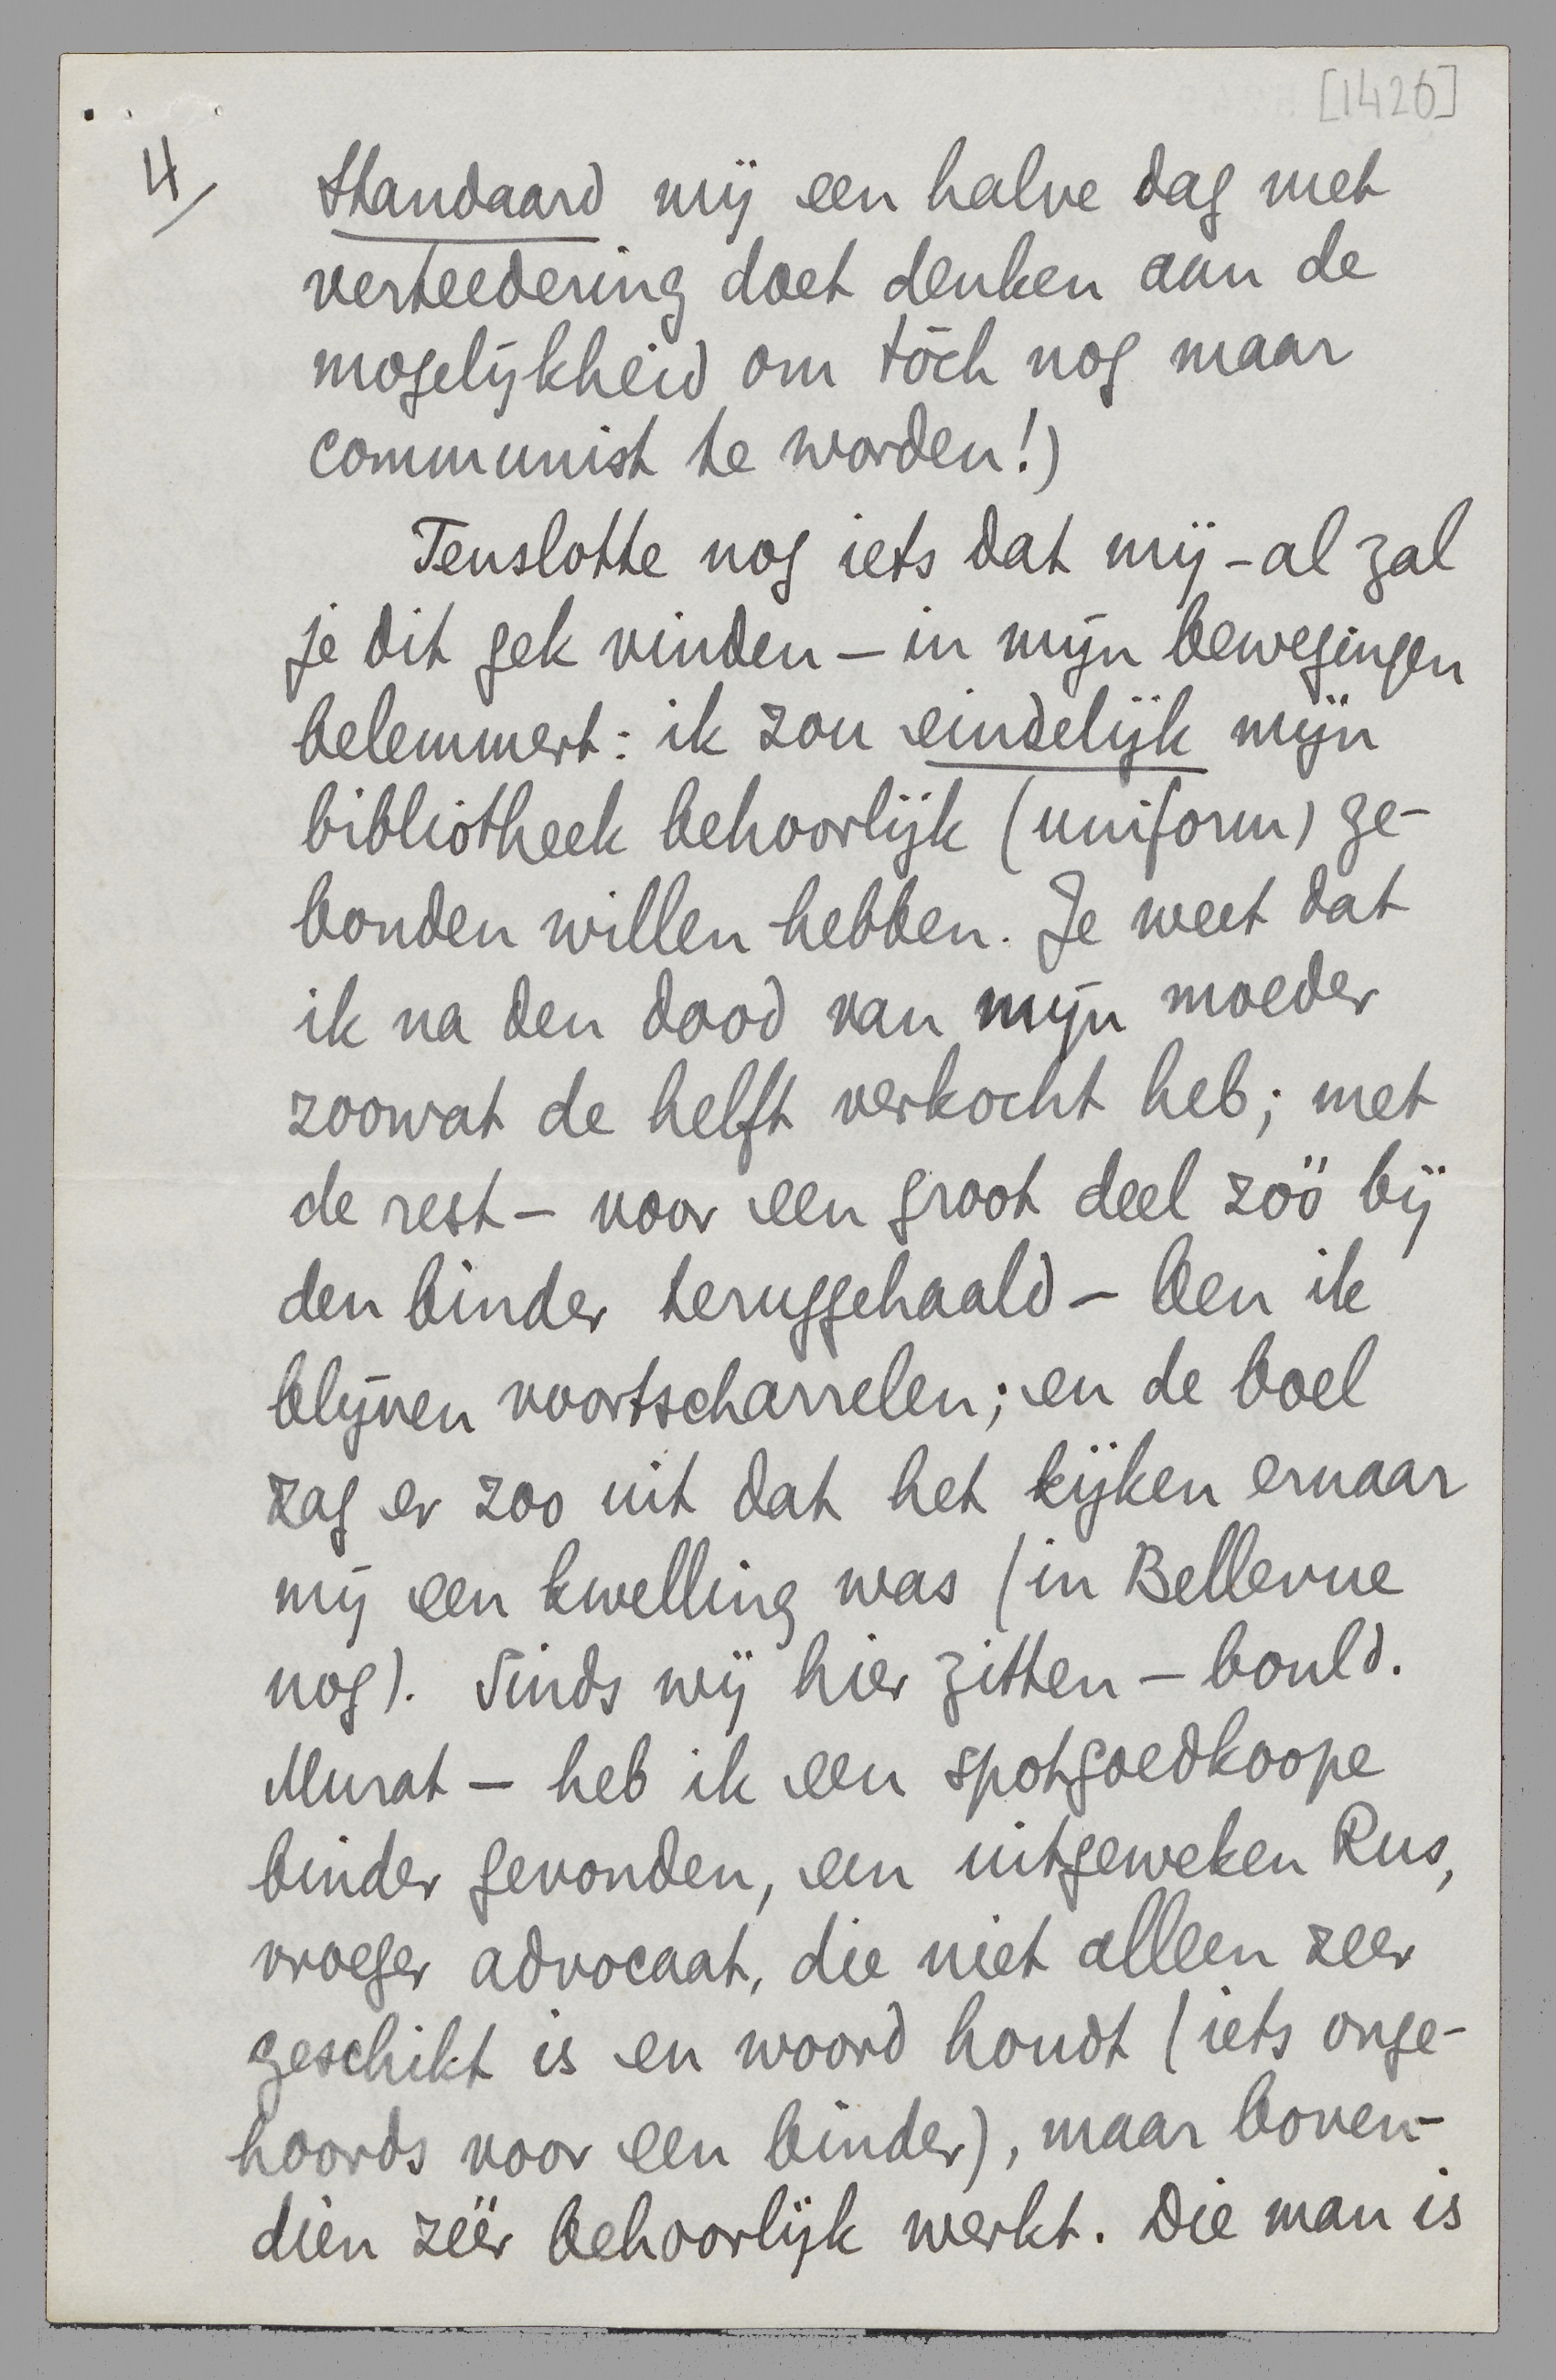 [1426]
4/
Standaard mij een halve dag met
verteedering doet denken aan de
mogelijkheid om tóch nog maar
communist te worden!)
Tenslotte nog iets dat mij - al zal
je dit gek vinden - in mijn bewegingen
belemmert: ik zou eindelijk mijn
bibliotheek behoorlijk (uniform) ge-
bonden willen hebben. Je weet dat
ik na den dood van mijn moeder
zoowat de helft verkocht heb; met
de rest - voor een groot deel zóó bij
den binder teruggehaald - ben ik
blijven voortscharrelen; en de boel
zag er zoo uit dat het kijken ernaar
mij een kwelling was (in Bellevue
nog). Sinds wij hier zitten - bould.
Murat - heb ik een spotgoedkoope
binder gevonden, een uitgeweken Rus,
vroeger advocaat, die niet alleen zeer
geschikt is en woord houdt (iets onge-
hoords voor een binder), maar boven-
dien zéér behoorlijk werkt. Die man is